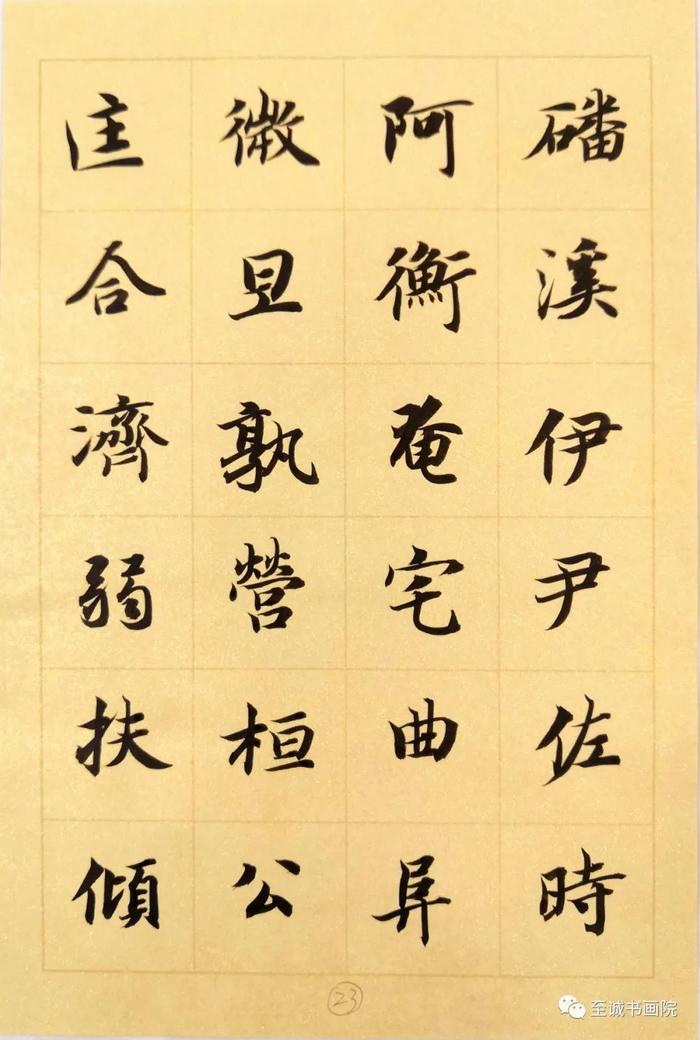 磻溪伊尹佐時
阿衡奄宅曲阜
微旦孰營桓公
匡合濟弱扶傾
23
至诚书画院